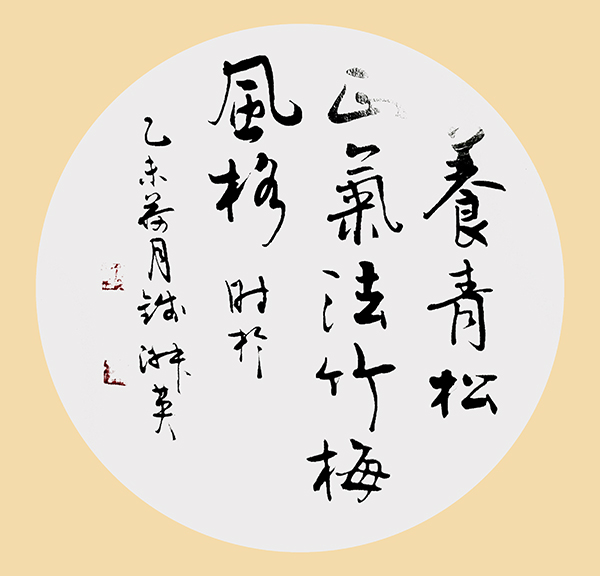 養青松
正氣法竹梅
風格 时於
乙未荷月 英